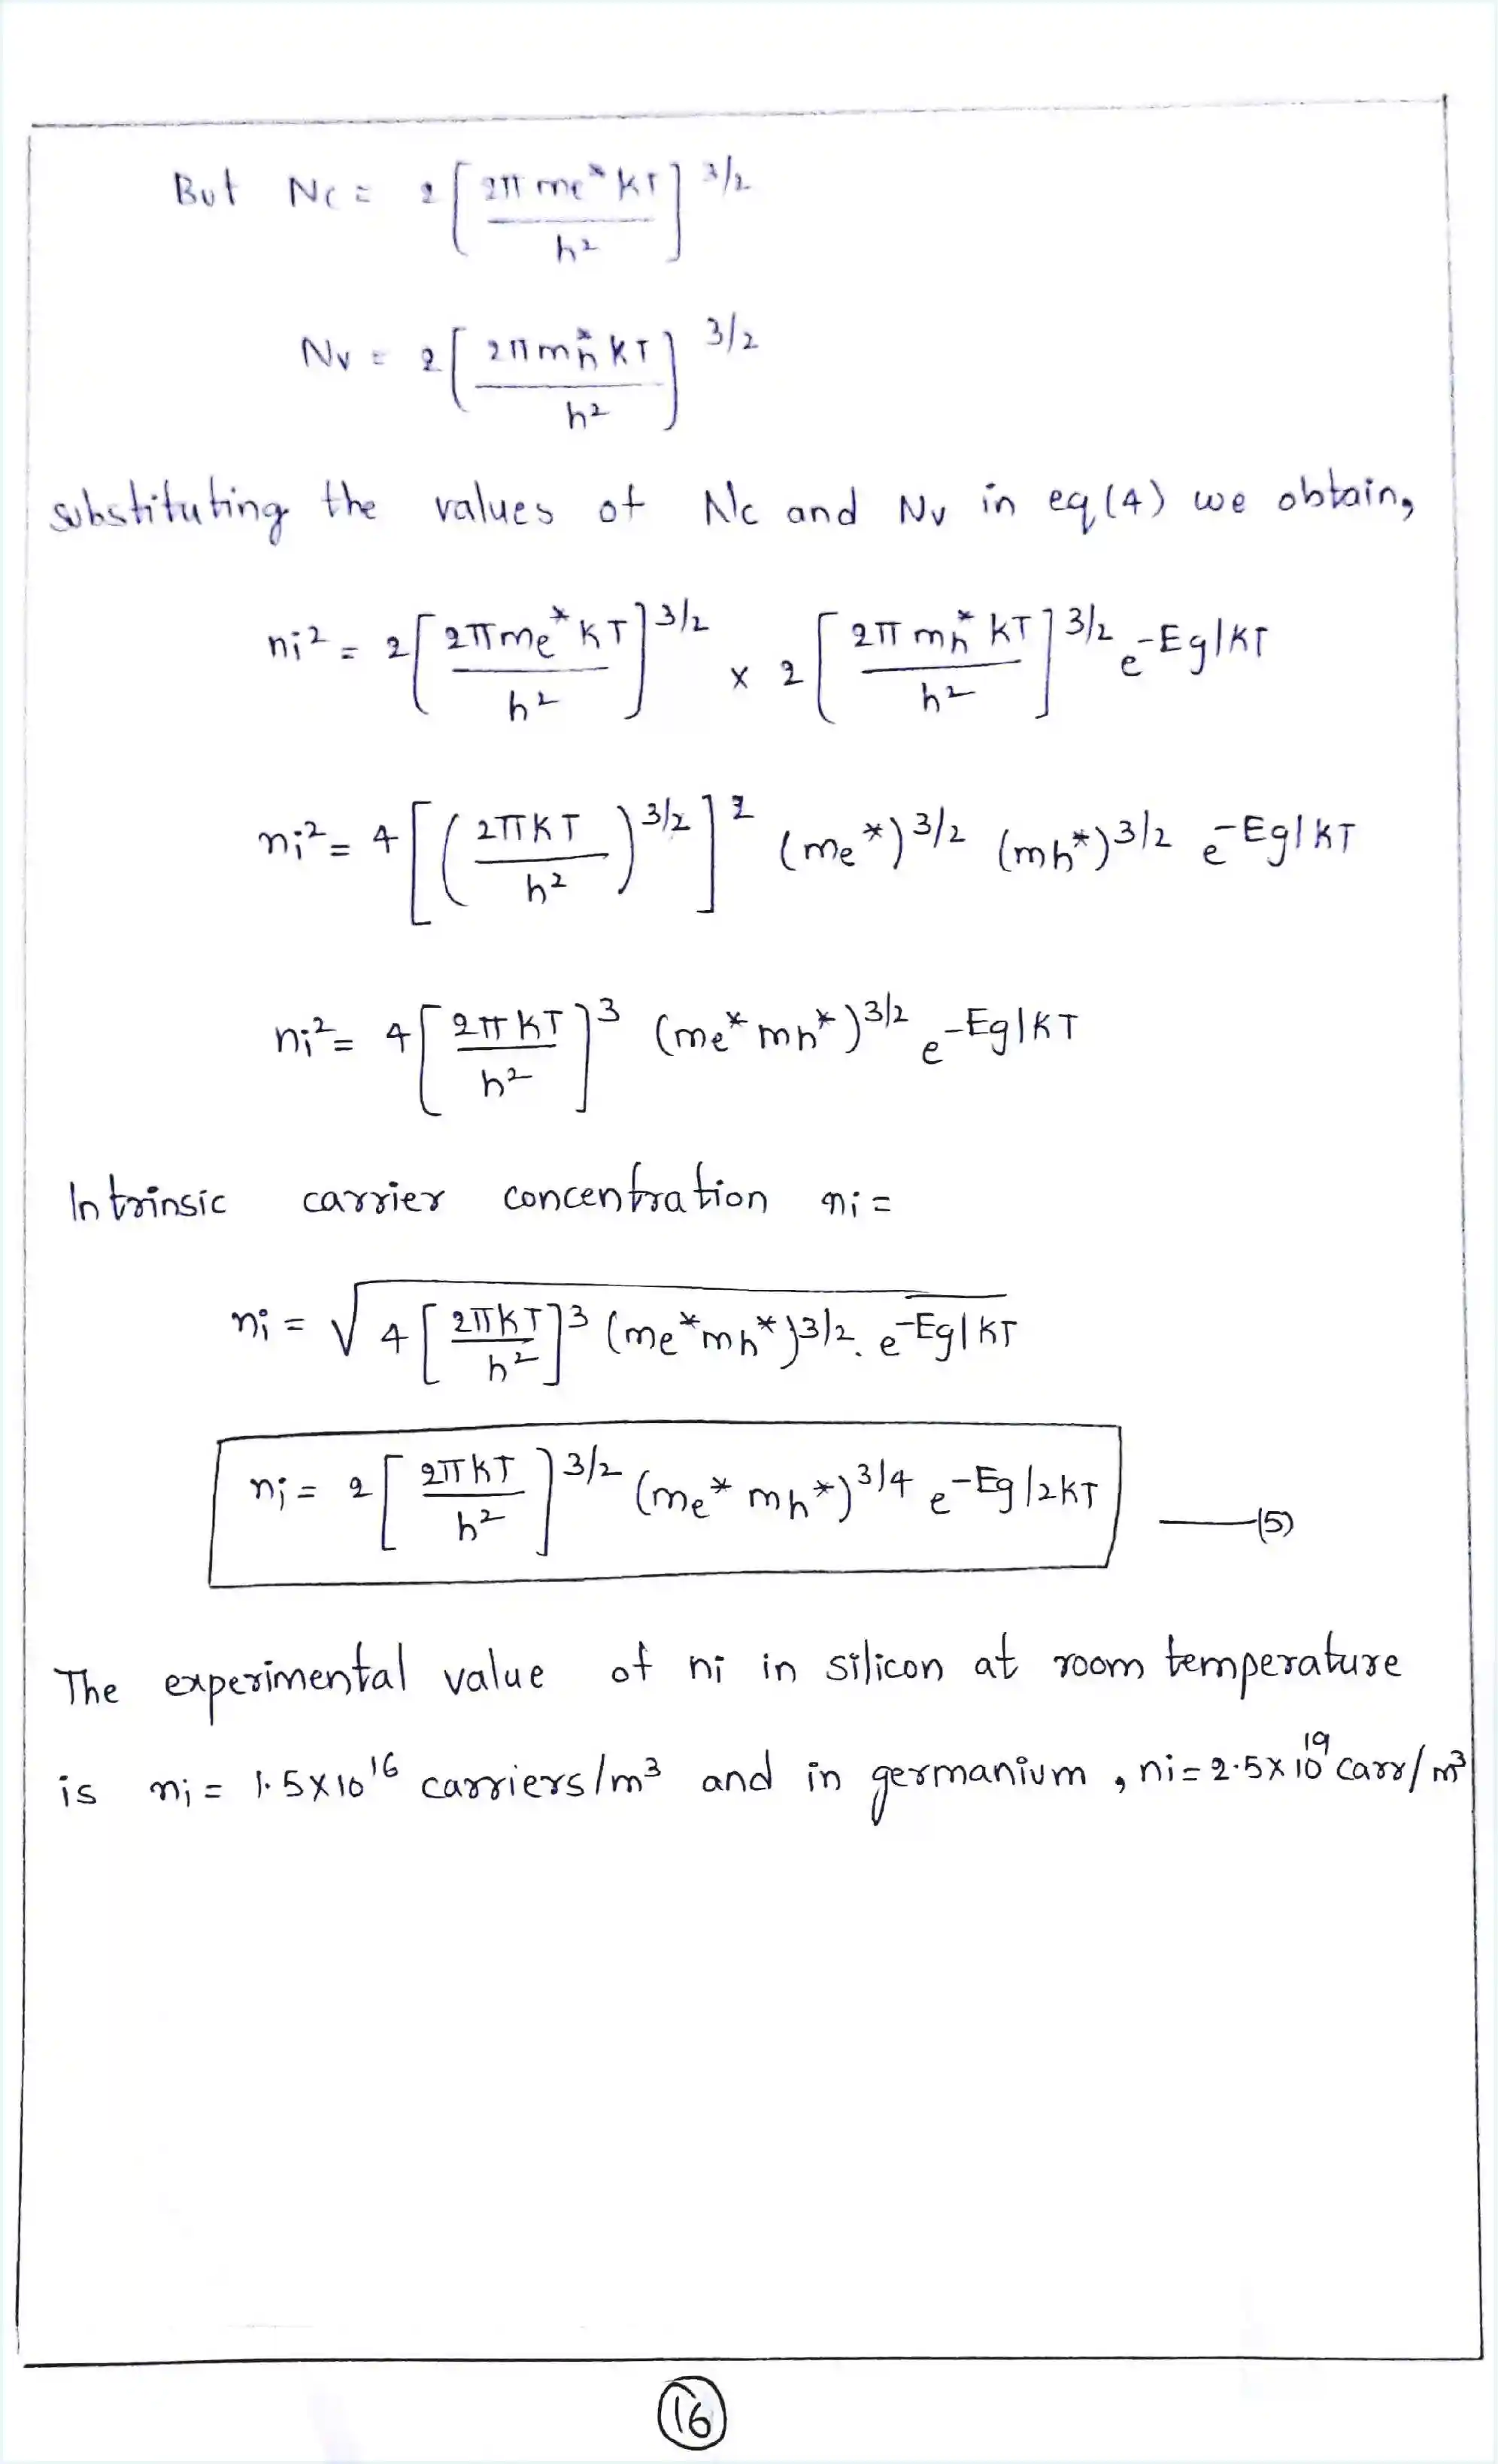 But Nc = 2 [2π me* KT / h²]^3/2
Nv = 2 [2π mh* KT / h²]^3/2
substituting the values of Nc and Nv in eq (4) we obtain,
ni² = 2 [2π me* KT / h²]^3/2 x 2 [2π mh* KT / h²]^3/2 e^-Eg/KT
ni² = 4 [(2πKT / h²)^3/2]^2 (me*)^3/2 (mh*)^3/2 e^-Eg/KT
ni² = 4 [2πKT / h²]^3 (me* mh*)^3/2 e^-Eg/KT
Intrinsic carrier concentration ni =
ni = √4 [2πKT / h²]^3 (me* mh*)^3/2. e^-Eg/KT
ni = 2 [2πKT / h²]^3/2 (me* mh*)^3/4 e^-Eg/2KT —(5)
The experimental value of ni in silicon at room temperature
is ni = 1.5x10^16 carriers/m³ and in germanium, ni = 2.5x10^19 carr/m³
16